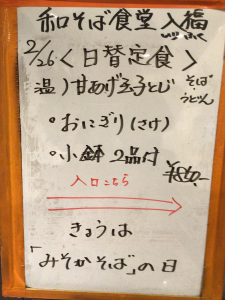 和そば食堂 入福
2/26 <日替定食>
温) 甘あげ玉子とじ そば・うどん
・おにぎり(さけ)
・小鉢 2品付 ¥850-
入口こちら
きょうは
「みそかそば」の日